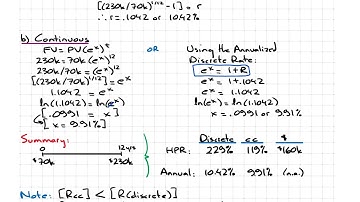 [(230k/70k)^(1/12) - 1] = r
∴ r = .1042 or 10.42%
b) Continuous
FV = PV(e^x)^t
230k = 70k(e^x)^12
230k/70k = (e^x)^12
[(230k/70k)^(1/12)] = e^x
1.1042 = e^x
ln(1.1042) = ln(e^x)
[.0991 = x]
[x = 9.91%]
OR
Using the Annualized
Discrete Rate:
e^x = 1+R
e^x = 1+.1042
e^x = 1.1042
ln(e^x) = ln(1.1042)
x = .0991 or 9.91%
Summary:
0 12yrs
$70k $230k
Discrete cc $
HPR: 229% 119% $160k
Annual: 10.42% 9.91% (n.a.)
Note: [Rcc] < [R(discrete)]